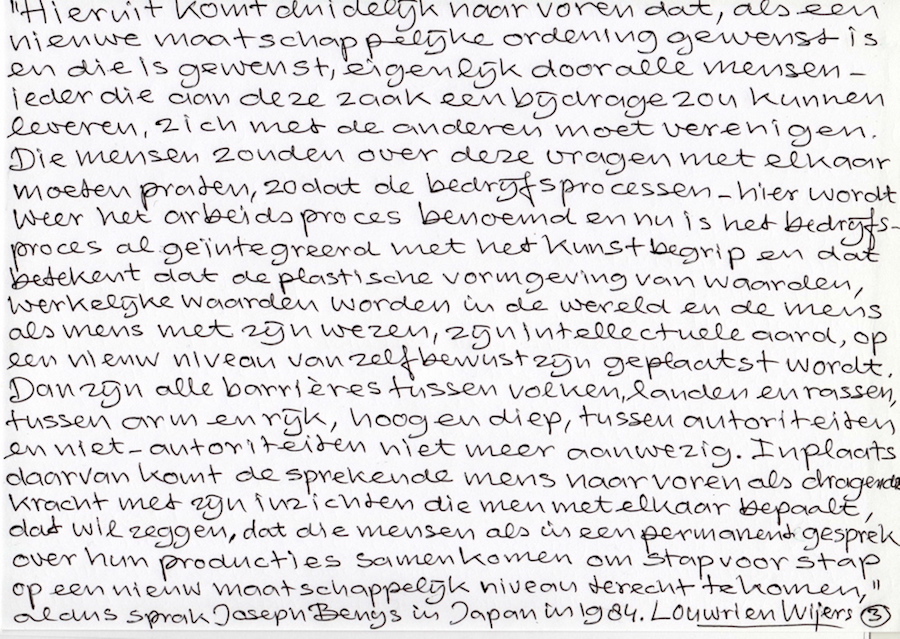 "Hieruit komt duidelijk naar voren dat, als een
nieuwe maatschappelijke ordening gewenst is
en die is gewenst, eigenlijk door alle mensen –
ieder die aan deze zaak een bijdrage zou kunnen
leveren, zich met de anderen moet verenigen.
Die mensen zouden over deze vragen met elkaar
moeten praten, zodat de bedrijfsprocessen – hier wordt
weer het arbeidsproces benoemd en nu is het bedrijfs-
proces al geïntegreerd met het kunstbegrip en dat
betekent dat de plastische vormgeving van waarden,
werkelijke waarden worden in de wereld en de mens
als mens met zijn wezen, zijn intellectuele aard, op
een nieuw niveau van zelfbewustzijn geplaatst wordt.
Dan zijn alle barrières tussen volken, landen en rassen,
tussen arm en rijk, hoog en diep, tussen autoriteiten
en niet-autoriteiten niet meer aanwezig. Inplaats
daarvan komt de sprekende mens naar voren als dragende
kracht met zijn inzichten die men met elkaar bepaalt,
dat wil zeggen, dat die mensen als in een permanent gesprek
over hun producties samenkomen om stap voor stap
op een nieuw maatschappelijk niveau terecht te komen,"
aldus sprak Joseph Beuys in Japan in 1984. Louwrien Wijers (3)